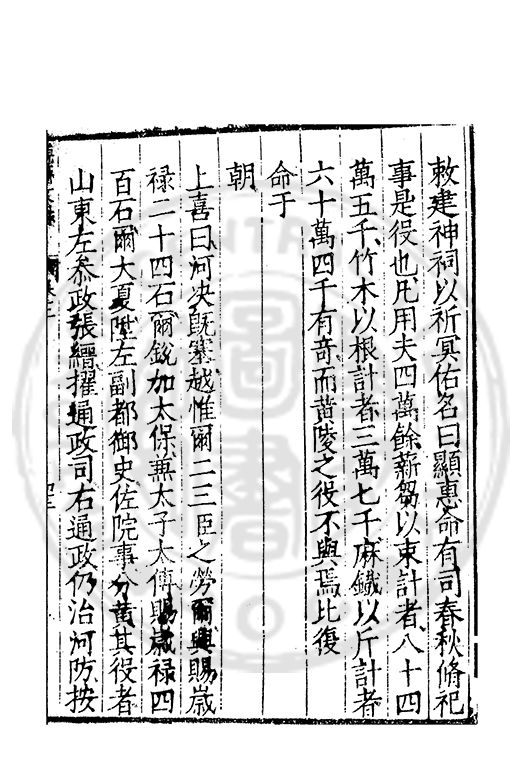 敕建神祠以祈冥佑名曰顯惠命有司春秋脩祀
事是役也凡用夫四萬餘薪芻以束計者八十四
萬五千竹木以根計者三萬七千麻鐵以斤計者
六十萬四千有奇而黄陵之役不與焉比復
命于
朝
上喜曰河決既塞越惟爾二三臣之勞爾興賜歲
禄二十四石爾銳加太保兼太子太傅賜歲禄四
百石爾大夏陞左副都御史佐院事分董其役者
山東左叅政張縉擢通政司右通政仍治河防按